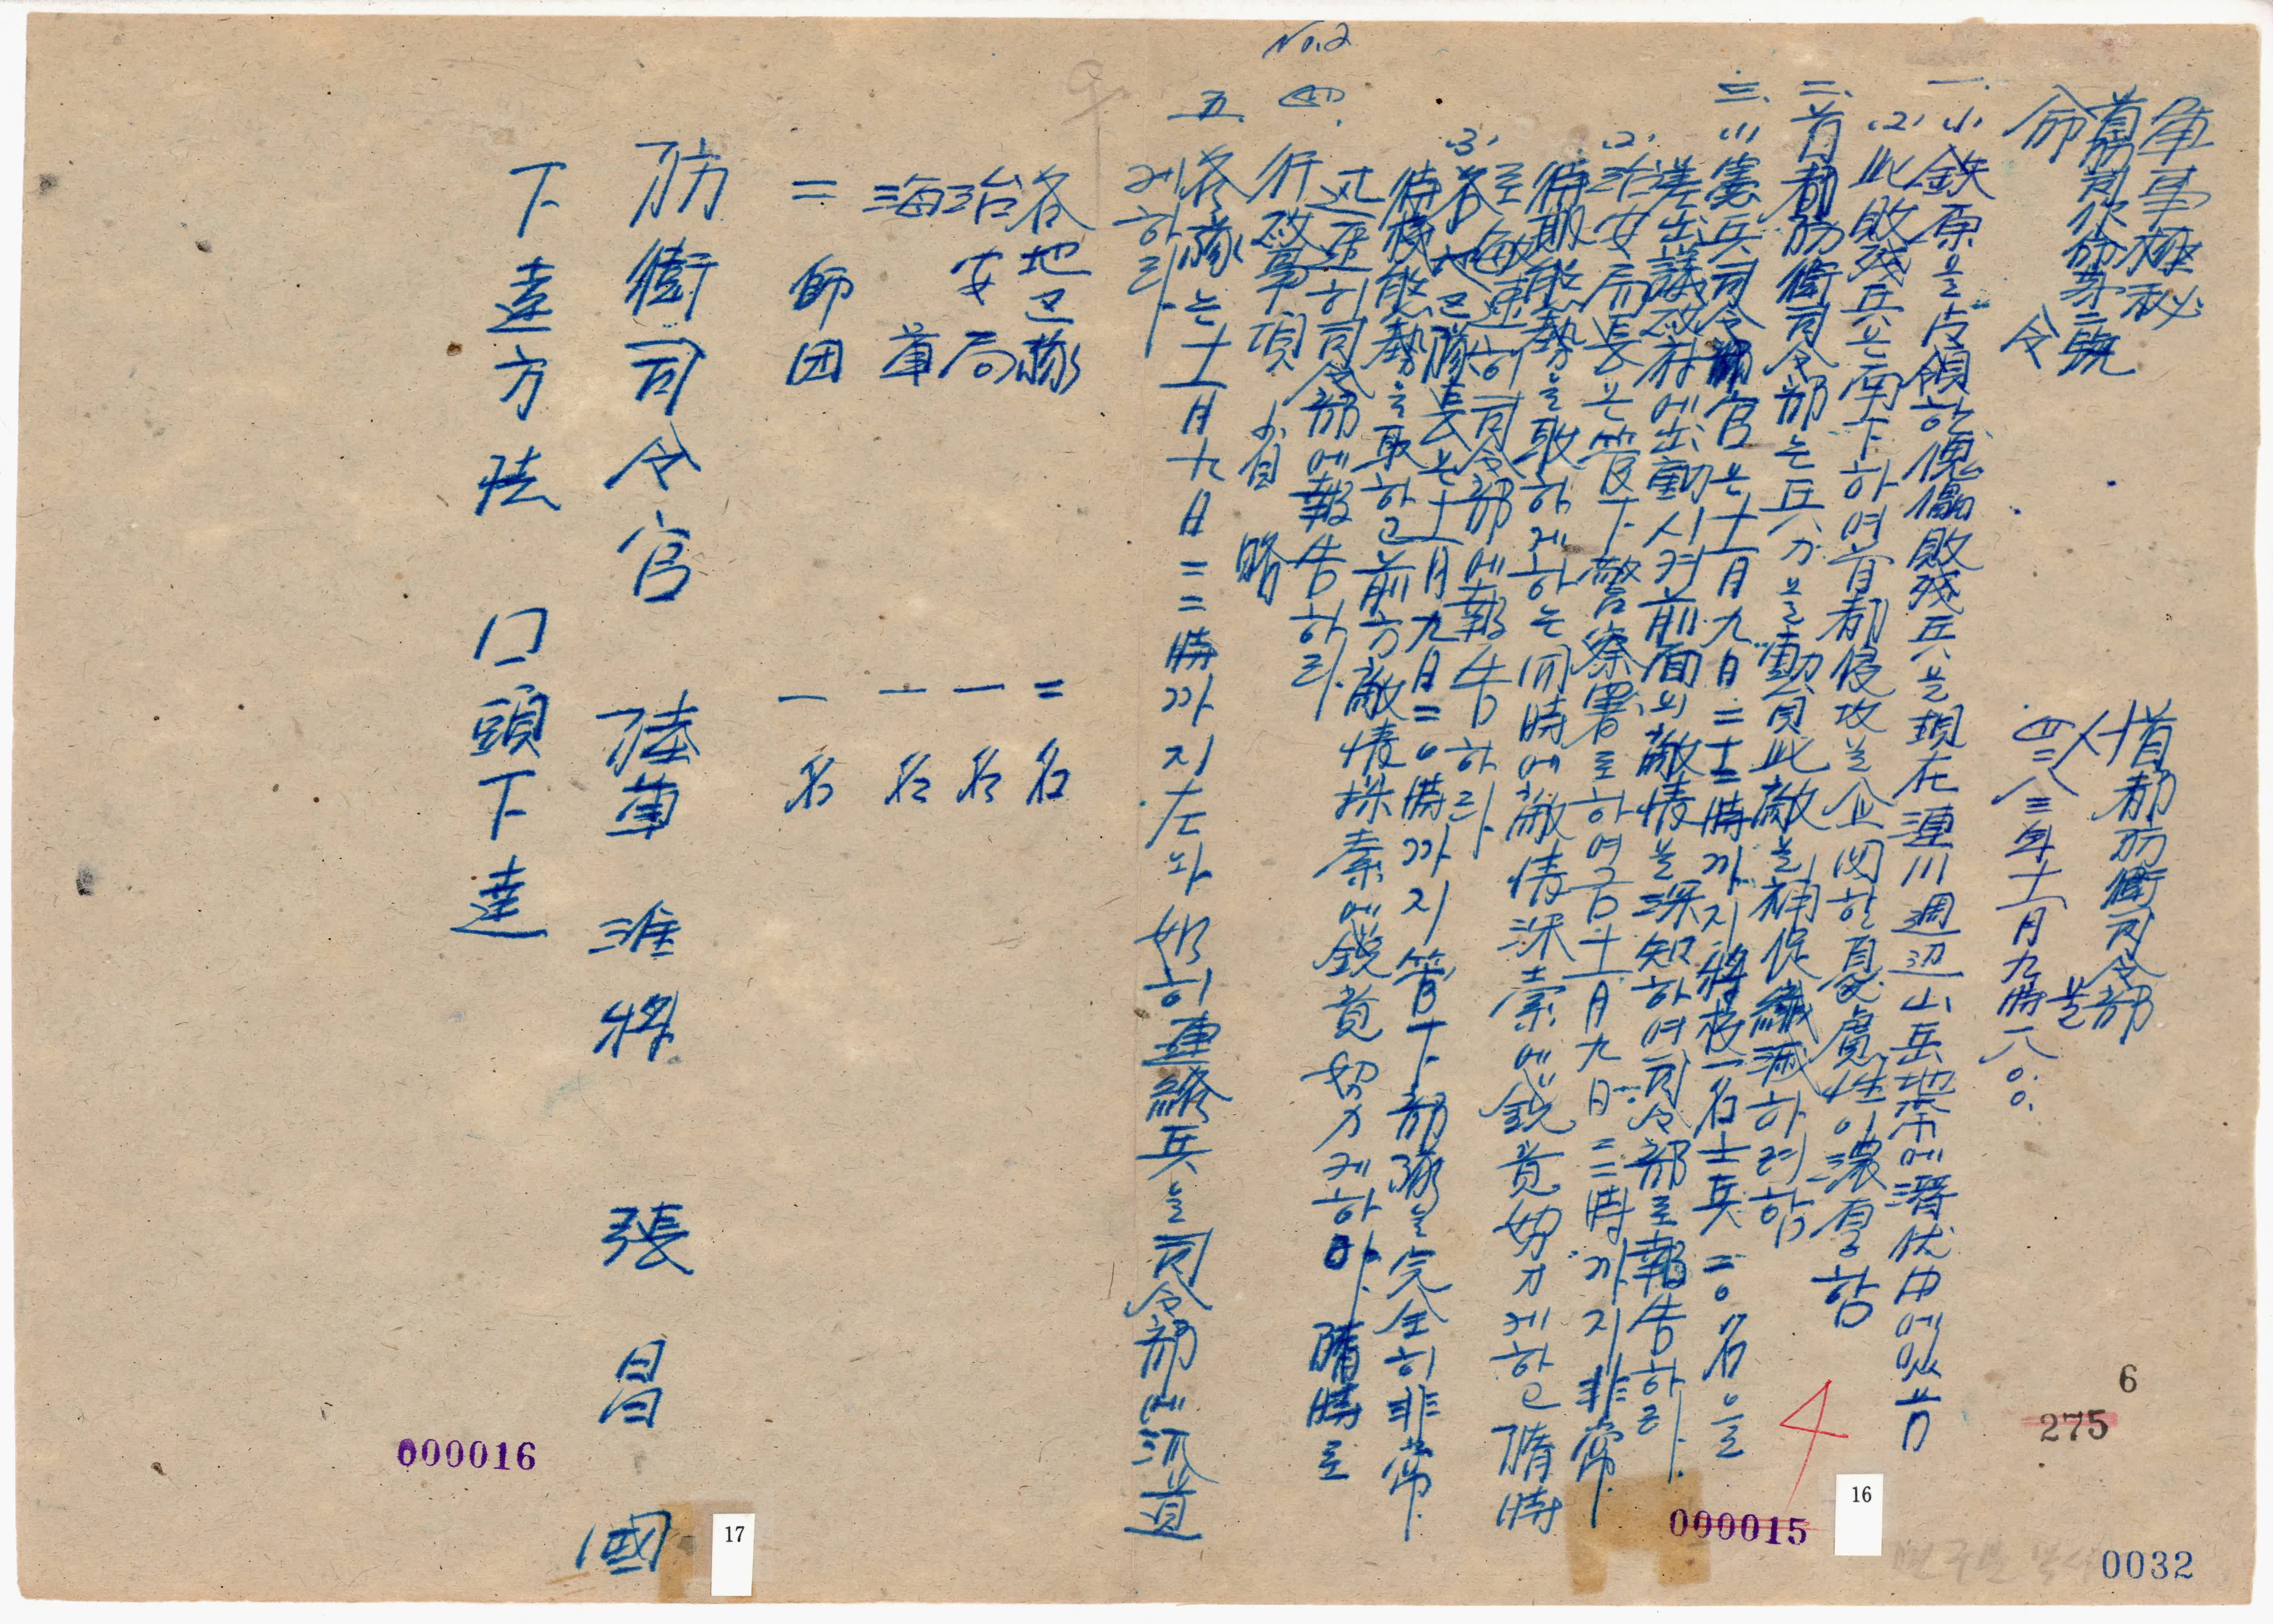 No.2
軍事極秘
首防司作命第二號
首都防衛司令部
命 令
서울
四二八三年十一月九日一八○○
一. (1) 鉄原을占領한傀儡敗殘兵은現在漣川週辺山岳地帶에潛伏中에있슴
(2) 此敗殘兵은南下하여首都侵攻을企図할憂慮性이濃厚함
二. 首都防衛司令部는兵力을動員此敵을捕促殲滅하려함
三. (1) 憲兵司令官은十一月九日二二時까지將校一名士兵二○名을
議政府에出動시켜前面의敵情을探知하여司令部로報告하라.
(2) 治安局長은管下警察署로하여금十一月九日二二時까지非常
待期態勢를取하게하는同時에敵情探索에銳意努力케하고隨時
로敏速히司令部에報告하라
(3) 各地区隊長은十一月九日二○時까지管下部隊을完全히非常
待機態勢를取하고前方敵情探索에銳意努力케하야隨時로
迅速히司令部에報告하라.
四. 行政事項 省略
五. 各隊는十一月九日二二時까지左와如히連絡兵을司令部에派遣
케하라.
各地区隊 二名
治安局 一名
海軍 一名
二師団 一名
防衛司令官 陸軍准將 張昌國
下達方法 口頭下達
6
275
4
16
000015
0032
17
000016